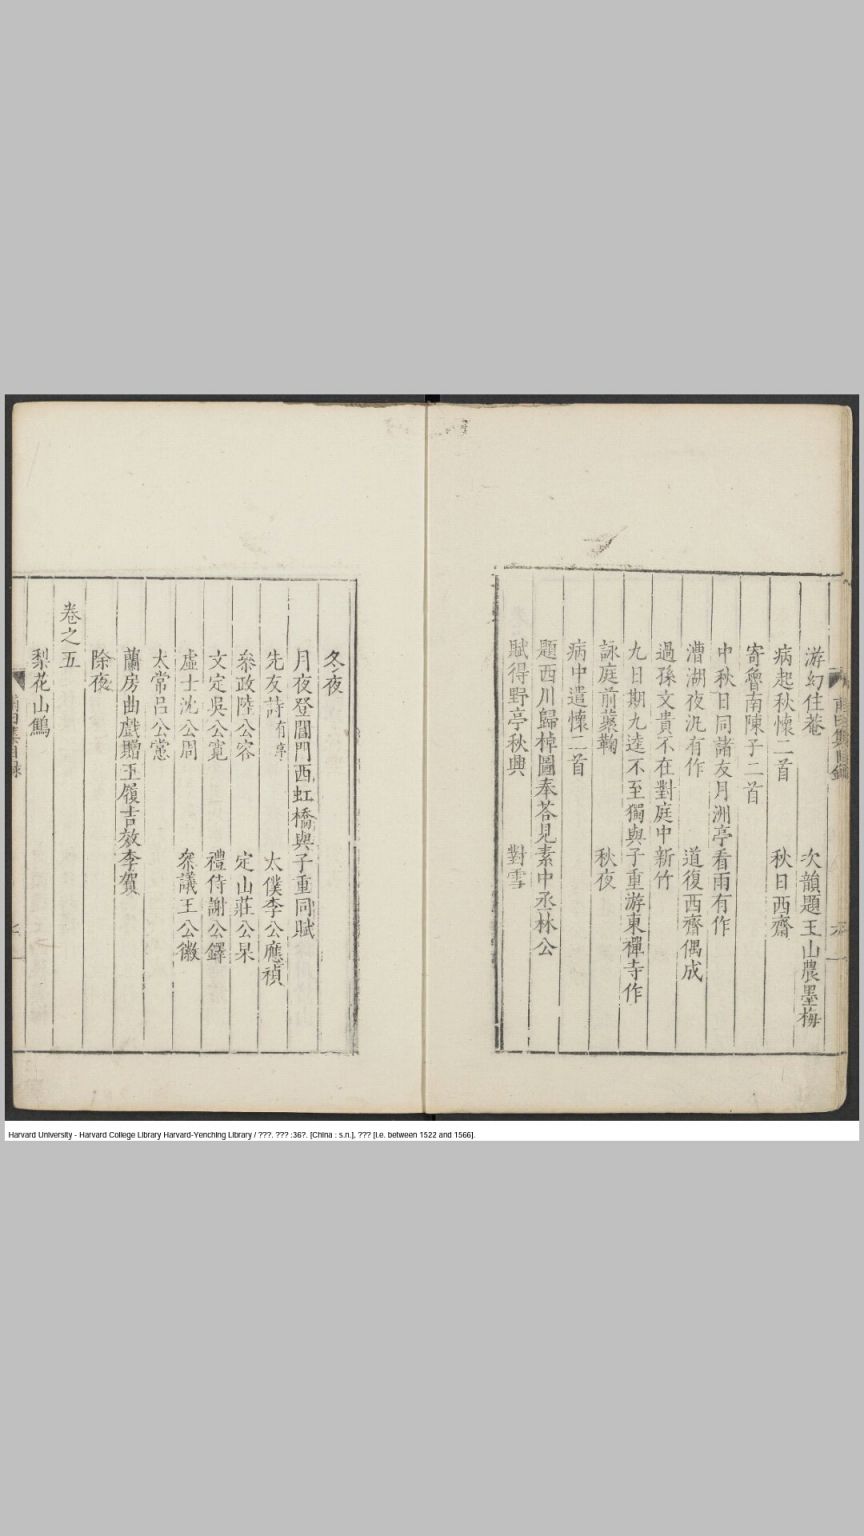 游幻住菴　次韻題王山農墨梅
病起秋懷二首　秋日西齋
寄魯南陳子二首
中秋日同諸友月洲亭看雨有作
漕湖夜汎有作　道復西齋偶成
過孫文貴不在對庭中新竹
九日期九逵不至獨與子重游東禪寺作
詠庭前蘂鞠　秋夜
病中遣懷二首
題西川歸棹圖奉荅見素中丞林公
賦得野亭秋興　對雪
冬夜
月夜登閶門西虹橋與子重同賦
先友詩有序　太僕李公應禎
叅政陸公容　定山莊公杲
文定吳公寬　禮侍謝公鐸
處士沈公周　叅議王公徽
太常呂公㦂
蘭房曲戲贈王履吉效李賀
除夜
卷之五
梨花山鷓
Harvard University - Harvard College Library Harvard-Yenching Library / ???. ??? :36?. [China : s.n.], ??? [i.e. between 1522 and 1566].